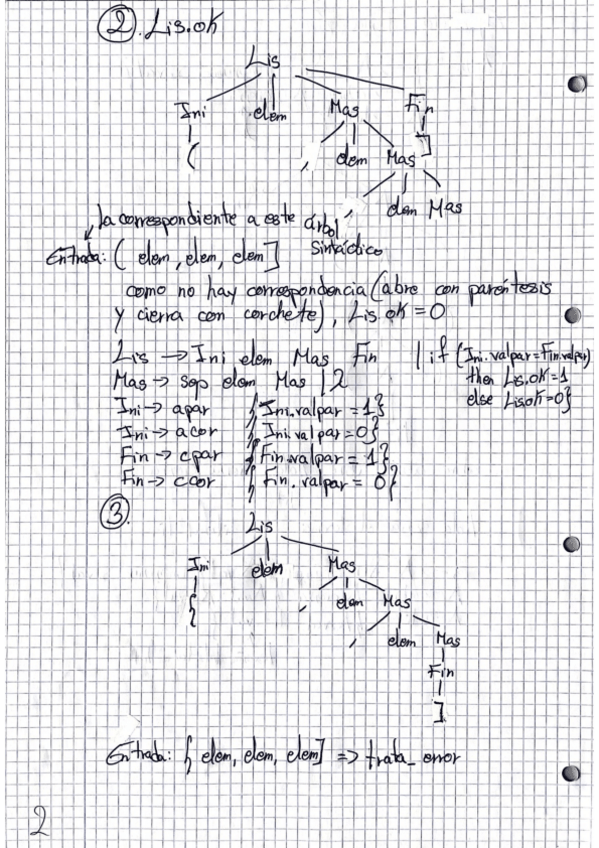 ②. Lis.ok
Lis
Ini elem Mas Fin
( , elem Mas ]
, elem Mas
la correspondiente a este árbol sintáctico
Entrada: ( elem, elem, elem ]
como no hay correspondencia (abre con paréntesis
y cierra con corchete), Lis.ok = 0
Lis → Ini elem Mas Fin { if (Ini.valpar = Fin.valpar)
then Lis.ok=1
Mas → sep elem Mas | λ
else Lis.ok=0}
Ini → apar { Ini.valpar = 1}
Ini → acor { Ini.valpar = 0}
Fin → cpar { Fin.valpar = 1}
Fin → ccor { Fin.valpar = 0}
③.
Lis
Ini elem Mas
{ , elem Mas
, elem Mas
Fin
]
Entrada: { elem, elem, elem] => trata_error
2